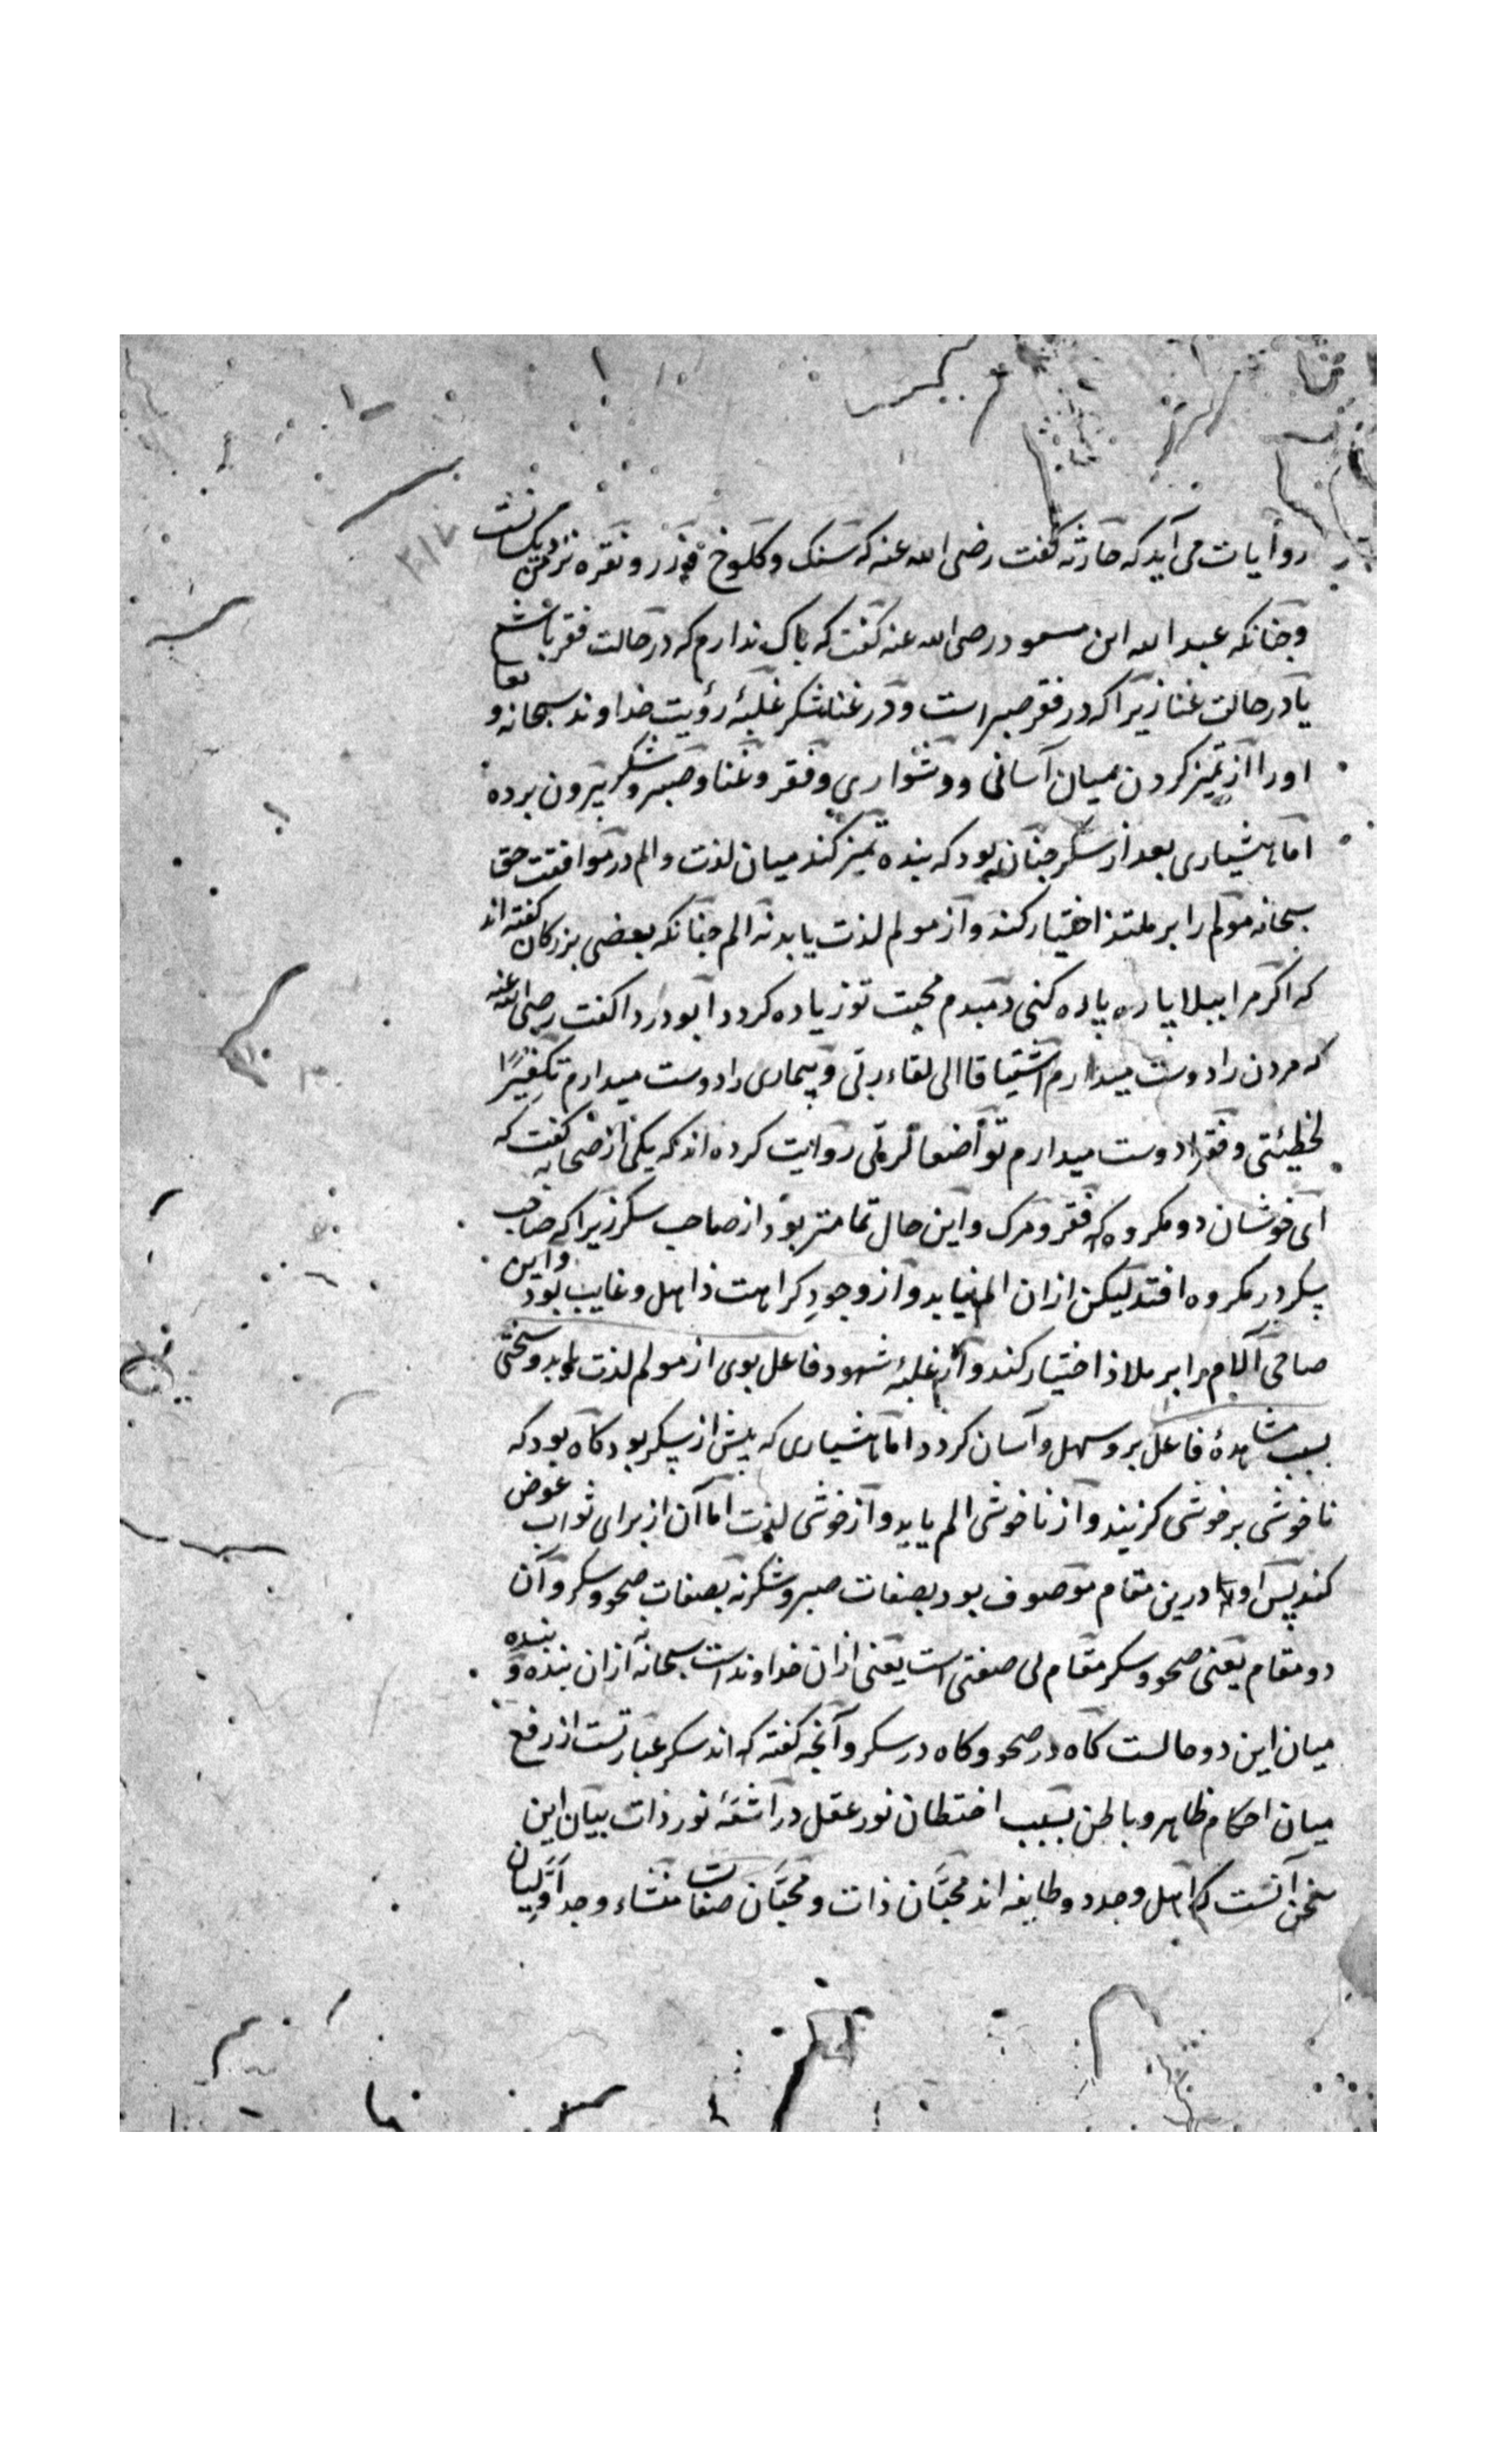 روایات می آید که حارثه گفت رضی الله عنه که سنک و کلوخ و زر و نقره نزد من یکسانست
۲۱۷
و چنانکه عبد الله ابن مسعود رضی الله عنه گفت که باک ندارم که در حالت فقر باشم
یا در حالت غنا زیرا که در فقر صبر است و در غنا شکر غلبهٔ رؤیت خداوند سبحانه و تعا
او را از تمیز کردن میان آسانی و دشواری و فقر و غنا و صبر و شکر بیرون برده
اما هشیاری بعد از سکر چنان بود که بنده تمیز کند میان لذت و الم در موافقت حق
سبحانه مولم را بر ملتذ اختیار کند و از مولم لذت یابد نه الم چنانکه بعضی بزرکان گفته اند
که اکر مرا ببلا پاره پاره کنی دمبدم محبت تو زیاده کردد ابو دردا گفت رضی الله عنه
که مردن را دوست میدارم اشتیاقا الی لقاء ربی و بیماری را دوست میدارم تکفیرًا
لخطیئتی و فقر را دوست میدارم تواضعا لربی روایت کرده اند که یکی از صحابه گفت که
ای خوشان دو مکروه که فقر و مرک و این حال تمامتر بود از صاحب سکر زیرا که صاحب
سکر در مکروه افتد لیکن ازان الم نیابد و از وجودِ کراهت ذاهل و غایب بود و این
صاحی آلام را بر ملاذ اختیار کند و از غلبهٔ شهود فاعل بوی از مولم لذت یابد و سختی
بسبب مشاهدهٔ فاعل برو سهل و آسان کردد اما هشیاری که پیش از سکر بود کاه بود که
ناخوشی بر خوشی کزیند و از ناخوشی الم یابد و از خوشی لذت اما آن از برای ثواب عوض
کند پس او درین مقام موصوف بود بصفات صبر و شکر نه بصفات صحو و سکر و آن
دو مقام یعنی صحو و سکر مقام بی صفتی است یعنی ازان خداوند است سبحانه نه ازان بنده و بنده
میان این دو حالست کاه در صحو و کاه در سکر و آنچه گفته که اند سکر عبارتست از رفع
میان احکام ظاهر و باطن بسبب اختطاف نور عقل در اشعهٔ نور ذات بیان این
سخن آنست که اهل وجد دو طایفه اند محبّان ذات و محبّان صفات منشاء وجد اوّلیان